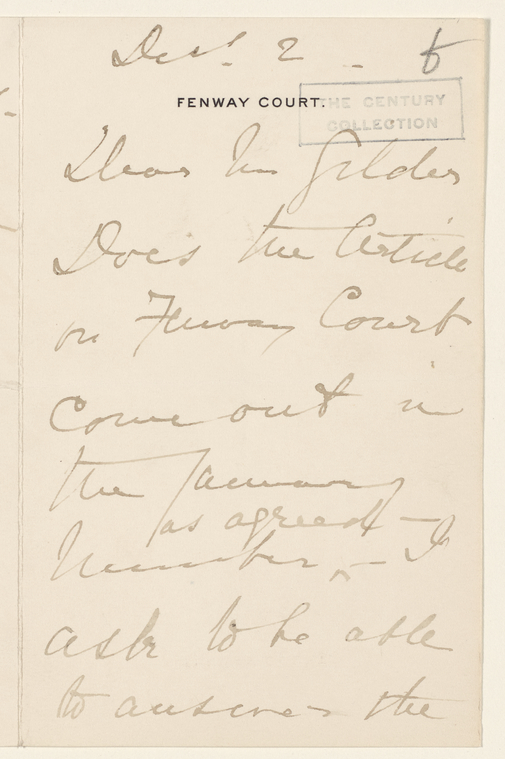 Dec. 2 6
FENWAY COURT.
THE CENTURY
COLLECTION
Dear Mr Gilder
Does the Article
on Fenway Court
come out in
the January
as agreed –
Number ^ – I
ask to be able
to answer the